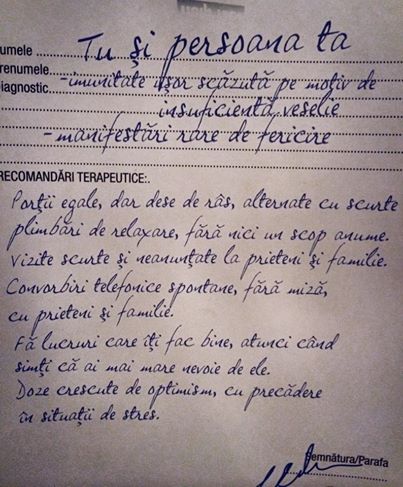 umele Tu și persoana ta
renumele
iagnostic - imunitate ușor scăzută pe motiv de
insuficiență veselie
- manifestări rare de fericire
RECOMANDĂRI TERAPEUTICE:.
Porții egale, dar dese de râs, alternate cu scurte
plimbări de relaxare, fără nici un scop anume.
Vizite scurte și neanunțate la prieteni și familie.
Convorbiri telefonice spontane, fără miză,
cu prieteni și familie.
Fă lucruri care îți fac bine, atunci când
simți că ai mai mare nevoie de ele.
Doze crescute de optimism, cu precădere
în situații de stres.
emnătura/Parafa